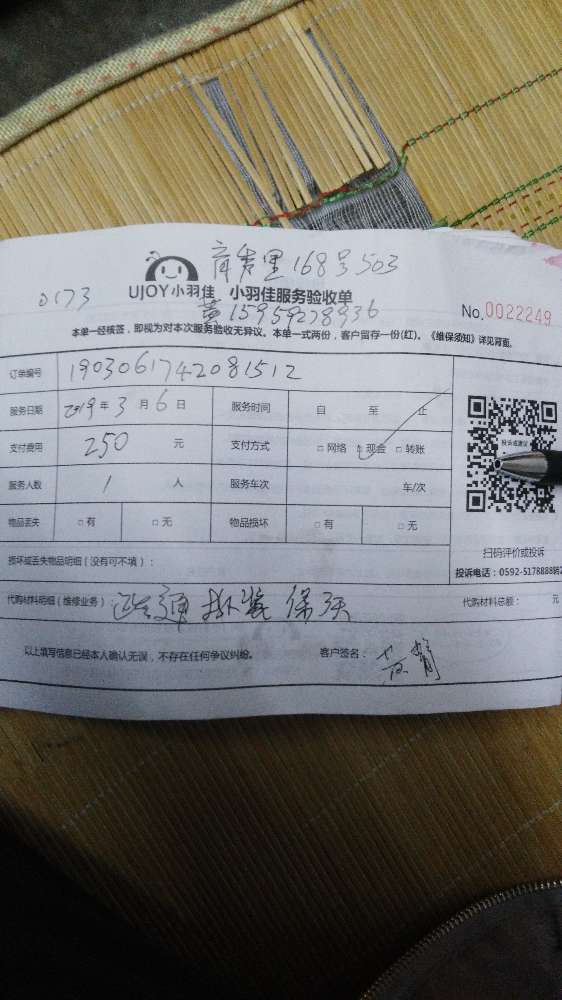 育秀里168号503
0173
UJOY小羽佳 小羽佳服务验收单
黄15959278936
No.0022249
本单一经核签，即视为对本次服务验收无异议。本单一式两份，客户留存一份(红)。《维保须知》详见背面。
订单编号 1903061742081512
服务日期 2019年3月6日 服务时间 自 至 止
支付费用 250 元 支付方式 □网络 □现金 □转账
投诉或建议
服务人数 1 人 服务车次 车/次
物品丢失 □有 □无 物品损坏 □有 □无
扫码评价或投诉
损坏或丢失物品明细（没有可不填）：
投诉电话：0592-5178888转2
代购材料明细（维修业务）： 疏通 拆装 保
代购材料总额： 元
以上填写信息已经本人确认无误，不存在任何争议纠纷。 客户签名：